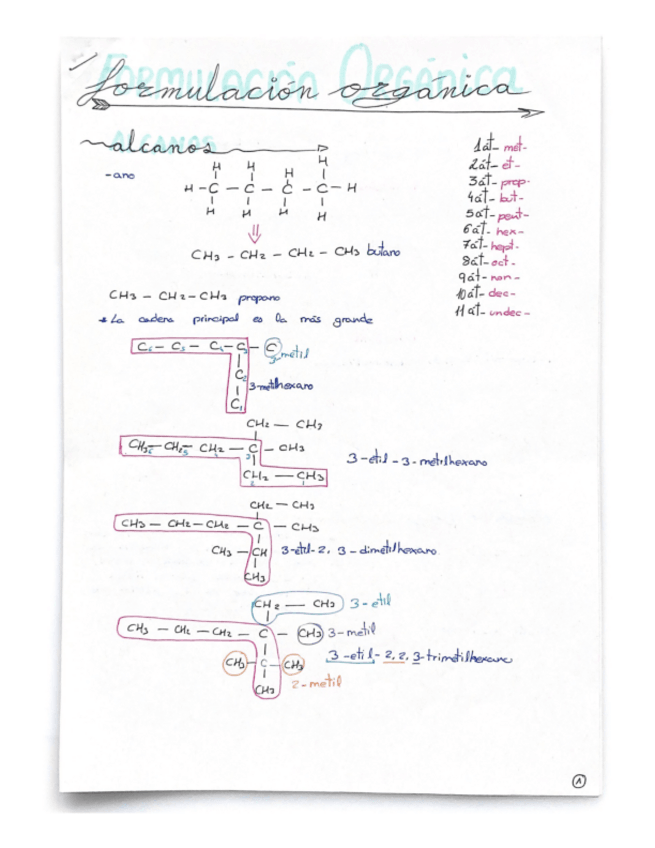 Formulación Orgánica
formulación orgánica
alcanos
-ano
H H H H
H - C - C - C - C - H
H H H H
⇓
CH3 - CH2 - CH2 - CH3 butano
1át- met-
2át- et-
3át- prop-
4át- but-
5át- pent-
6át- hex-
7át- hept-
8át- oct-
9át- non-
10át- dec-
11át- undec-
CH3 - CH2 - CH3 propano
* La cadena principal es la más grande
C6 - C5 - C4 - C3 - C
3-metil
C2
3-metilhexano
C1
CH2 - CH3
CH3 - CH2 - CH2 - C - CH3
6 5 4 3
CH2 - CH3
3-etil-3-metilhexano
CH2 - CH3
CH3 - CH2 - CH2 - C - CH3
CH3 - CH 3-etil-2,3-dimetilhexano
CH3
CH2 - CH3 3-etil
CH3 - CH2 - CH2 - C - CH3 3-metil
CH3 - C - CH3 3-etil-2,2,3-trimetilhexano
CH3 2-metil
1